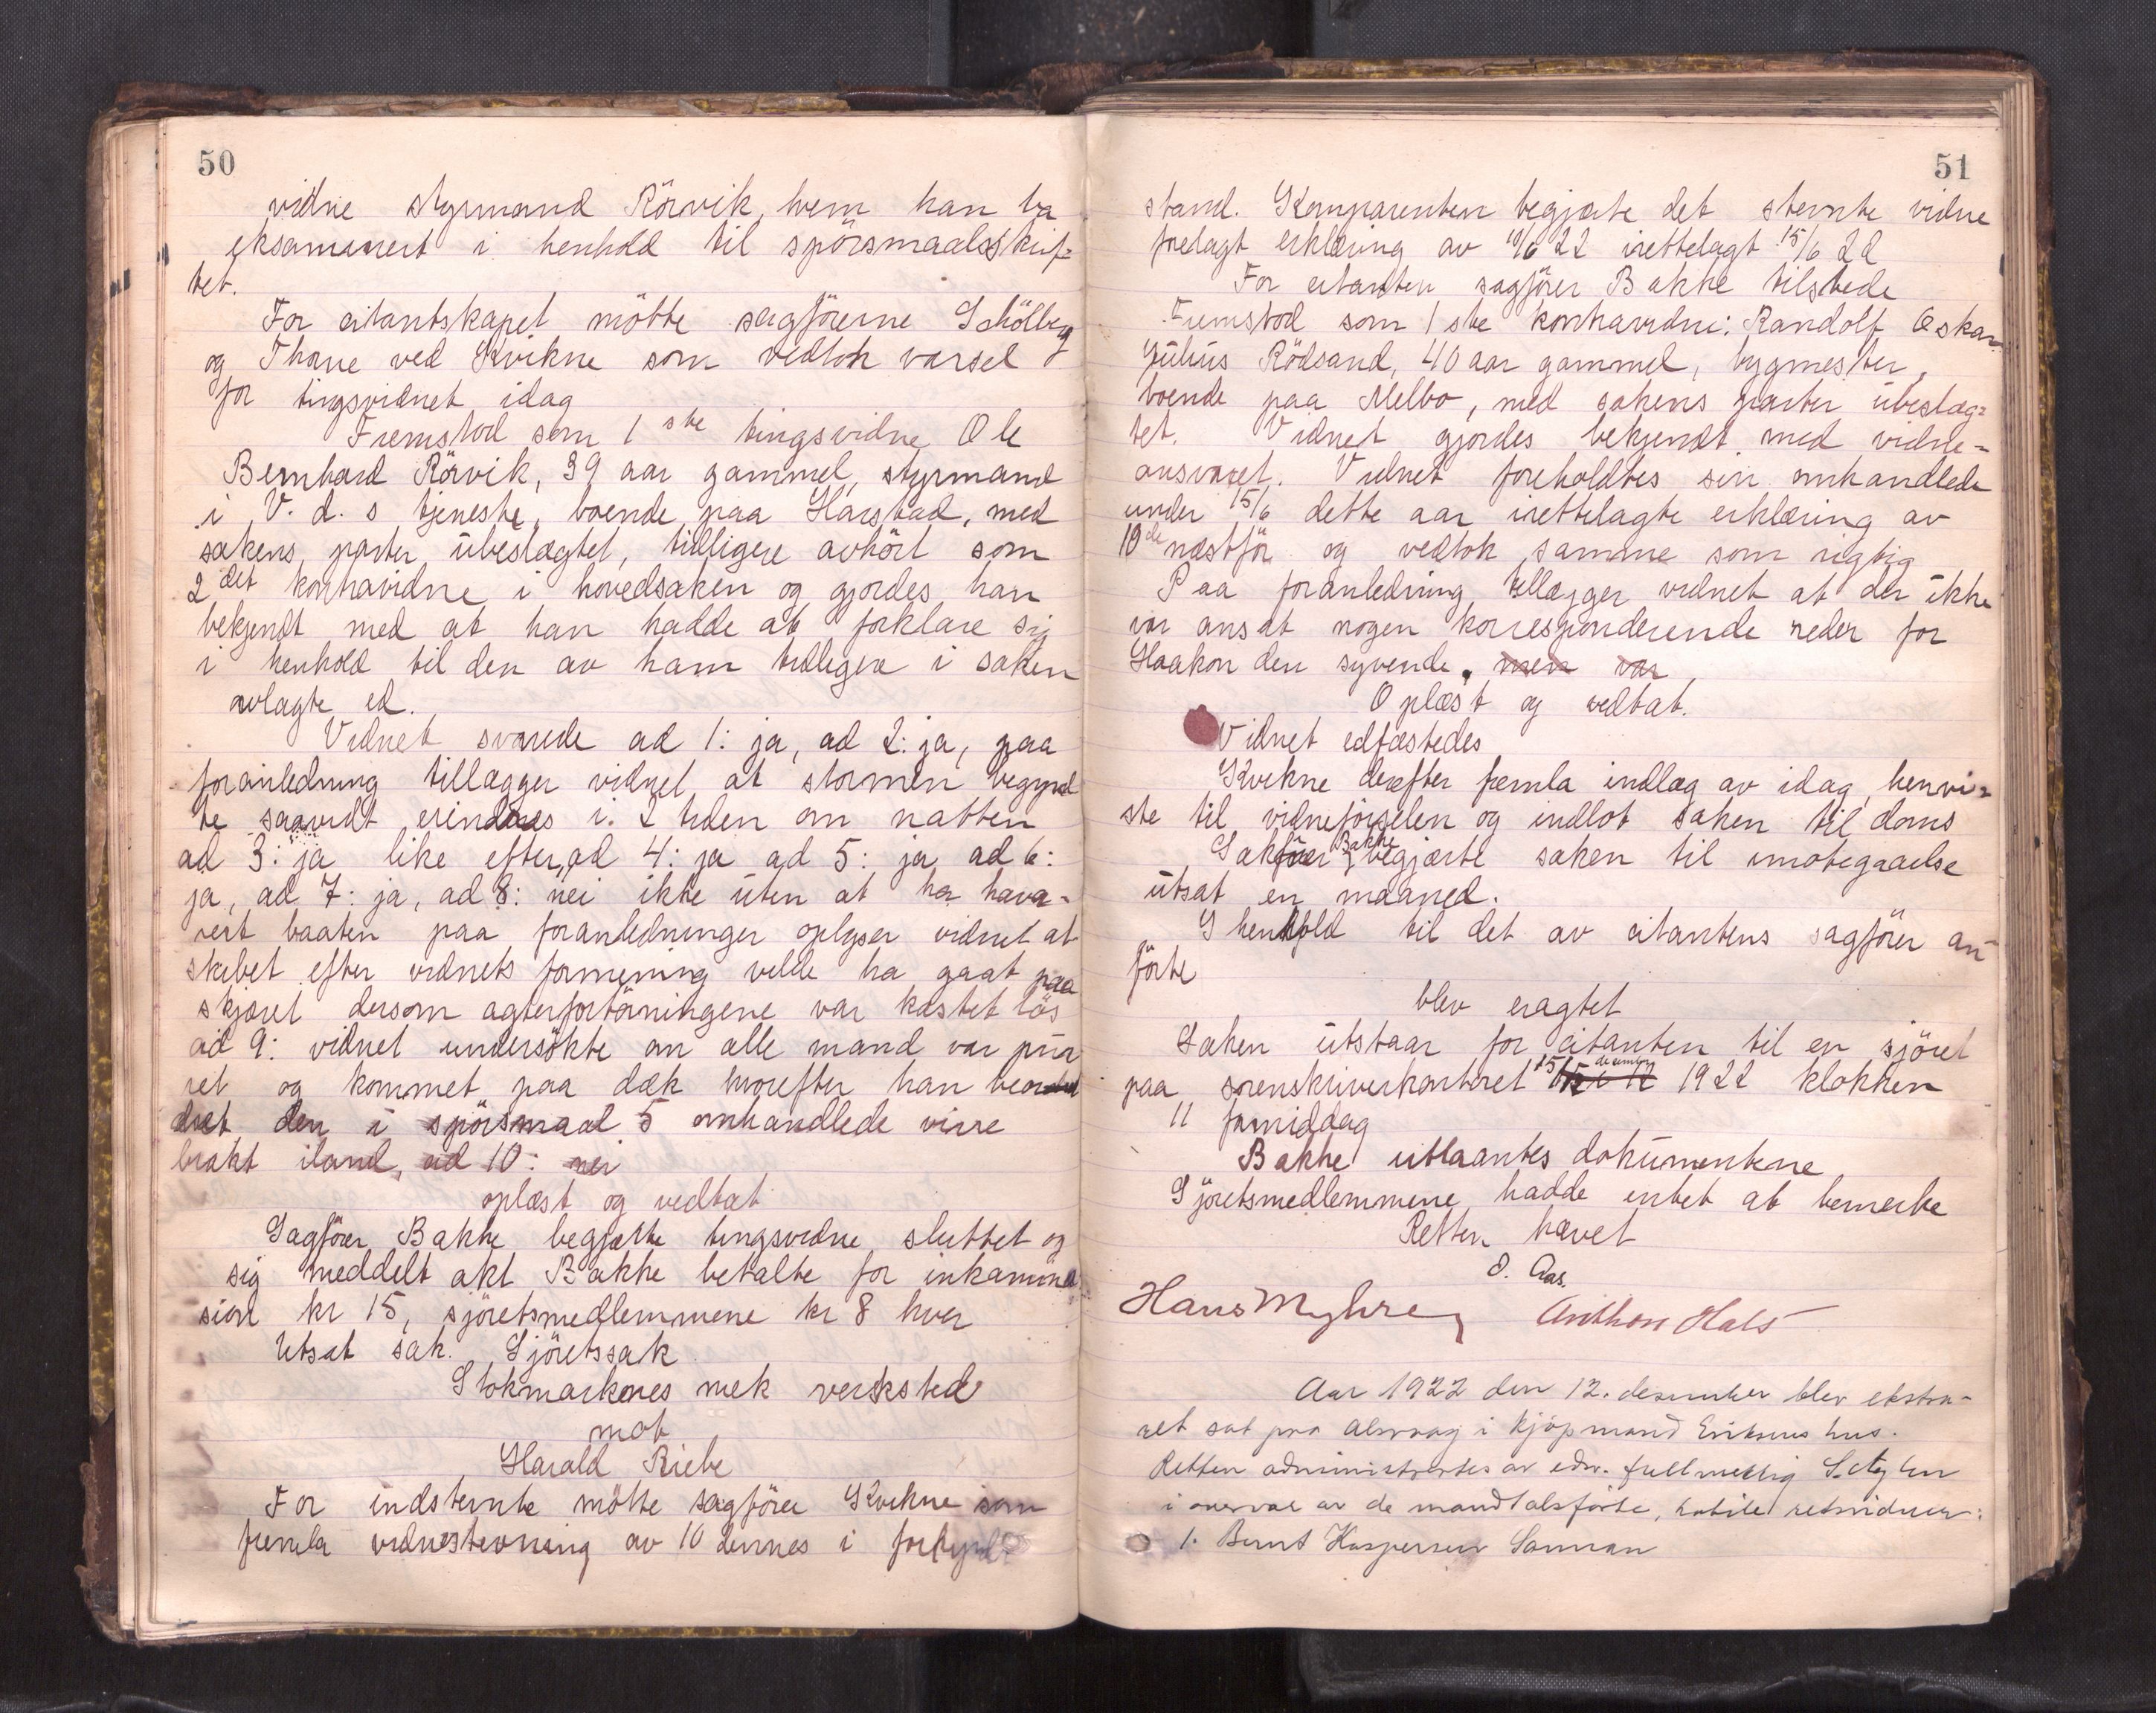 50
vidne styrmand Rörvik, hvem han ba
eksaminert i henhold til spörsmaalsskrif-
tet.
For citantskapet mötte sagförerne Schölberg
og Thone ved Kvikne som vedtok varsel
for tingsvidnet idag
Fremstod som 1ste tingsvidne Ole
Bernhard Rörvik, 39 aar gammel, styrmand
i V. d. s tjeneste, boende paa Harstad, med
sakens parter ubeslægtet, tidligere avhört som
2det kontravidne i hovedsaken og gjordes han
bekjendt med at han hadde at forklare sig
i henhold til den av ham tidligere i saken
avlagte ed.
Vidnet svarede ad 1: ja, ad 2: ja, paa
foranledning tillægger vidnet at stormen begynd
te saavidt erindres i 2 tiden om natten
ad 3: ja like efter, ad 4: ja ad 5: ja, ad 6:
ja, ad 7: ja, ad 8: nei ikke uten at ha hava-
rert baaten paa foranledninger oplyser vidnet at
skibet efter vidnets formening vilde ha gaat paa
skjæret dersom agterfortöiningene var kastet lös
ad 9: vidnet undersökte om alle mand var pur
ret og kommet paa dæk hvorefter han beor
dret den i spörsmaal 5 omhandlede vire
brakt iland, ad 10: nei
oplæst og vedtat
Sagförer Bakke begjærte tingsvidne sluttet og
sig meddelt akt Bakke betalte for inkamina
sion kr 15, sjöretsmedlemmene kr 8 hver
Utsat sak. Sjöretssak
Stokmarknes mek verksted
mot
Harald Riebe
For indstevnte mötte sagförer Kvikne som
fremla vidnestevning av 10 dennes i forkyndt
51
stand. Komparenten begjærte det stevnte vidne
forelagt erklæring av 10/6 22 irettelagt 15/6 22
For citanten sagförer Bakke tilstede
Fremstod som 1ste kontravidne: Randolf Oskar
Julius Rödsand, 40 aar gammel, bygmester,
boende paa Melbo, med sakens parter ubeslæg-
tet. Vidnet gjordes bekjendt med vidne-
ansvaret. Vidnet foreholdtes sin omhandlede
under 15/6 dette aar irettelagte erklæring av
10de næstför og vedtok samme som rigtig
Paa foranledning tillægger vidnet at der ikke
var ansat nogen korresponderende reder for
Haakon den syvende. men var
Oplæst og vedtat.
Vidnet edfæstedes
Kvikne derefter fremla indlæg av idag, henvi-
ste til vidneförselen og indlot saken til doms
Sakförer Bakke begjærte saken til imötegaaelse
utsat en maaned.
I henhold til det av citantens sagförer an
förte
blev eragtet
Saken utstaar for citanten til en sjöret
paa sorenskriverkontoret 15 desember 1922 klokken
11 formiddag
Bakke utlaantes dokumentene
Sjöretsmedlemmene hadde intet at bemerke
Retten hævet
O. Aas.
Hans Myhre Anthon Hals
Aar 1922 den 12. desember blev ekstra-
ret sat paa Alsvaag i kjöpmand Eriksens hus.
Retten administrertes av edsv. fullmektig
i overvær av de mandtalsförte, habile retsvidner:
1. Bernt Kaspersen